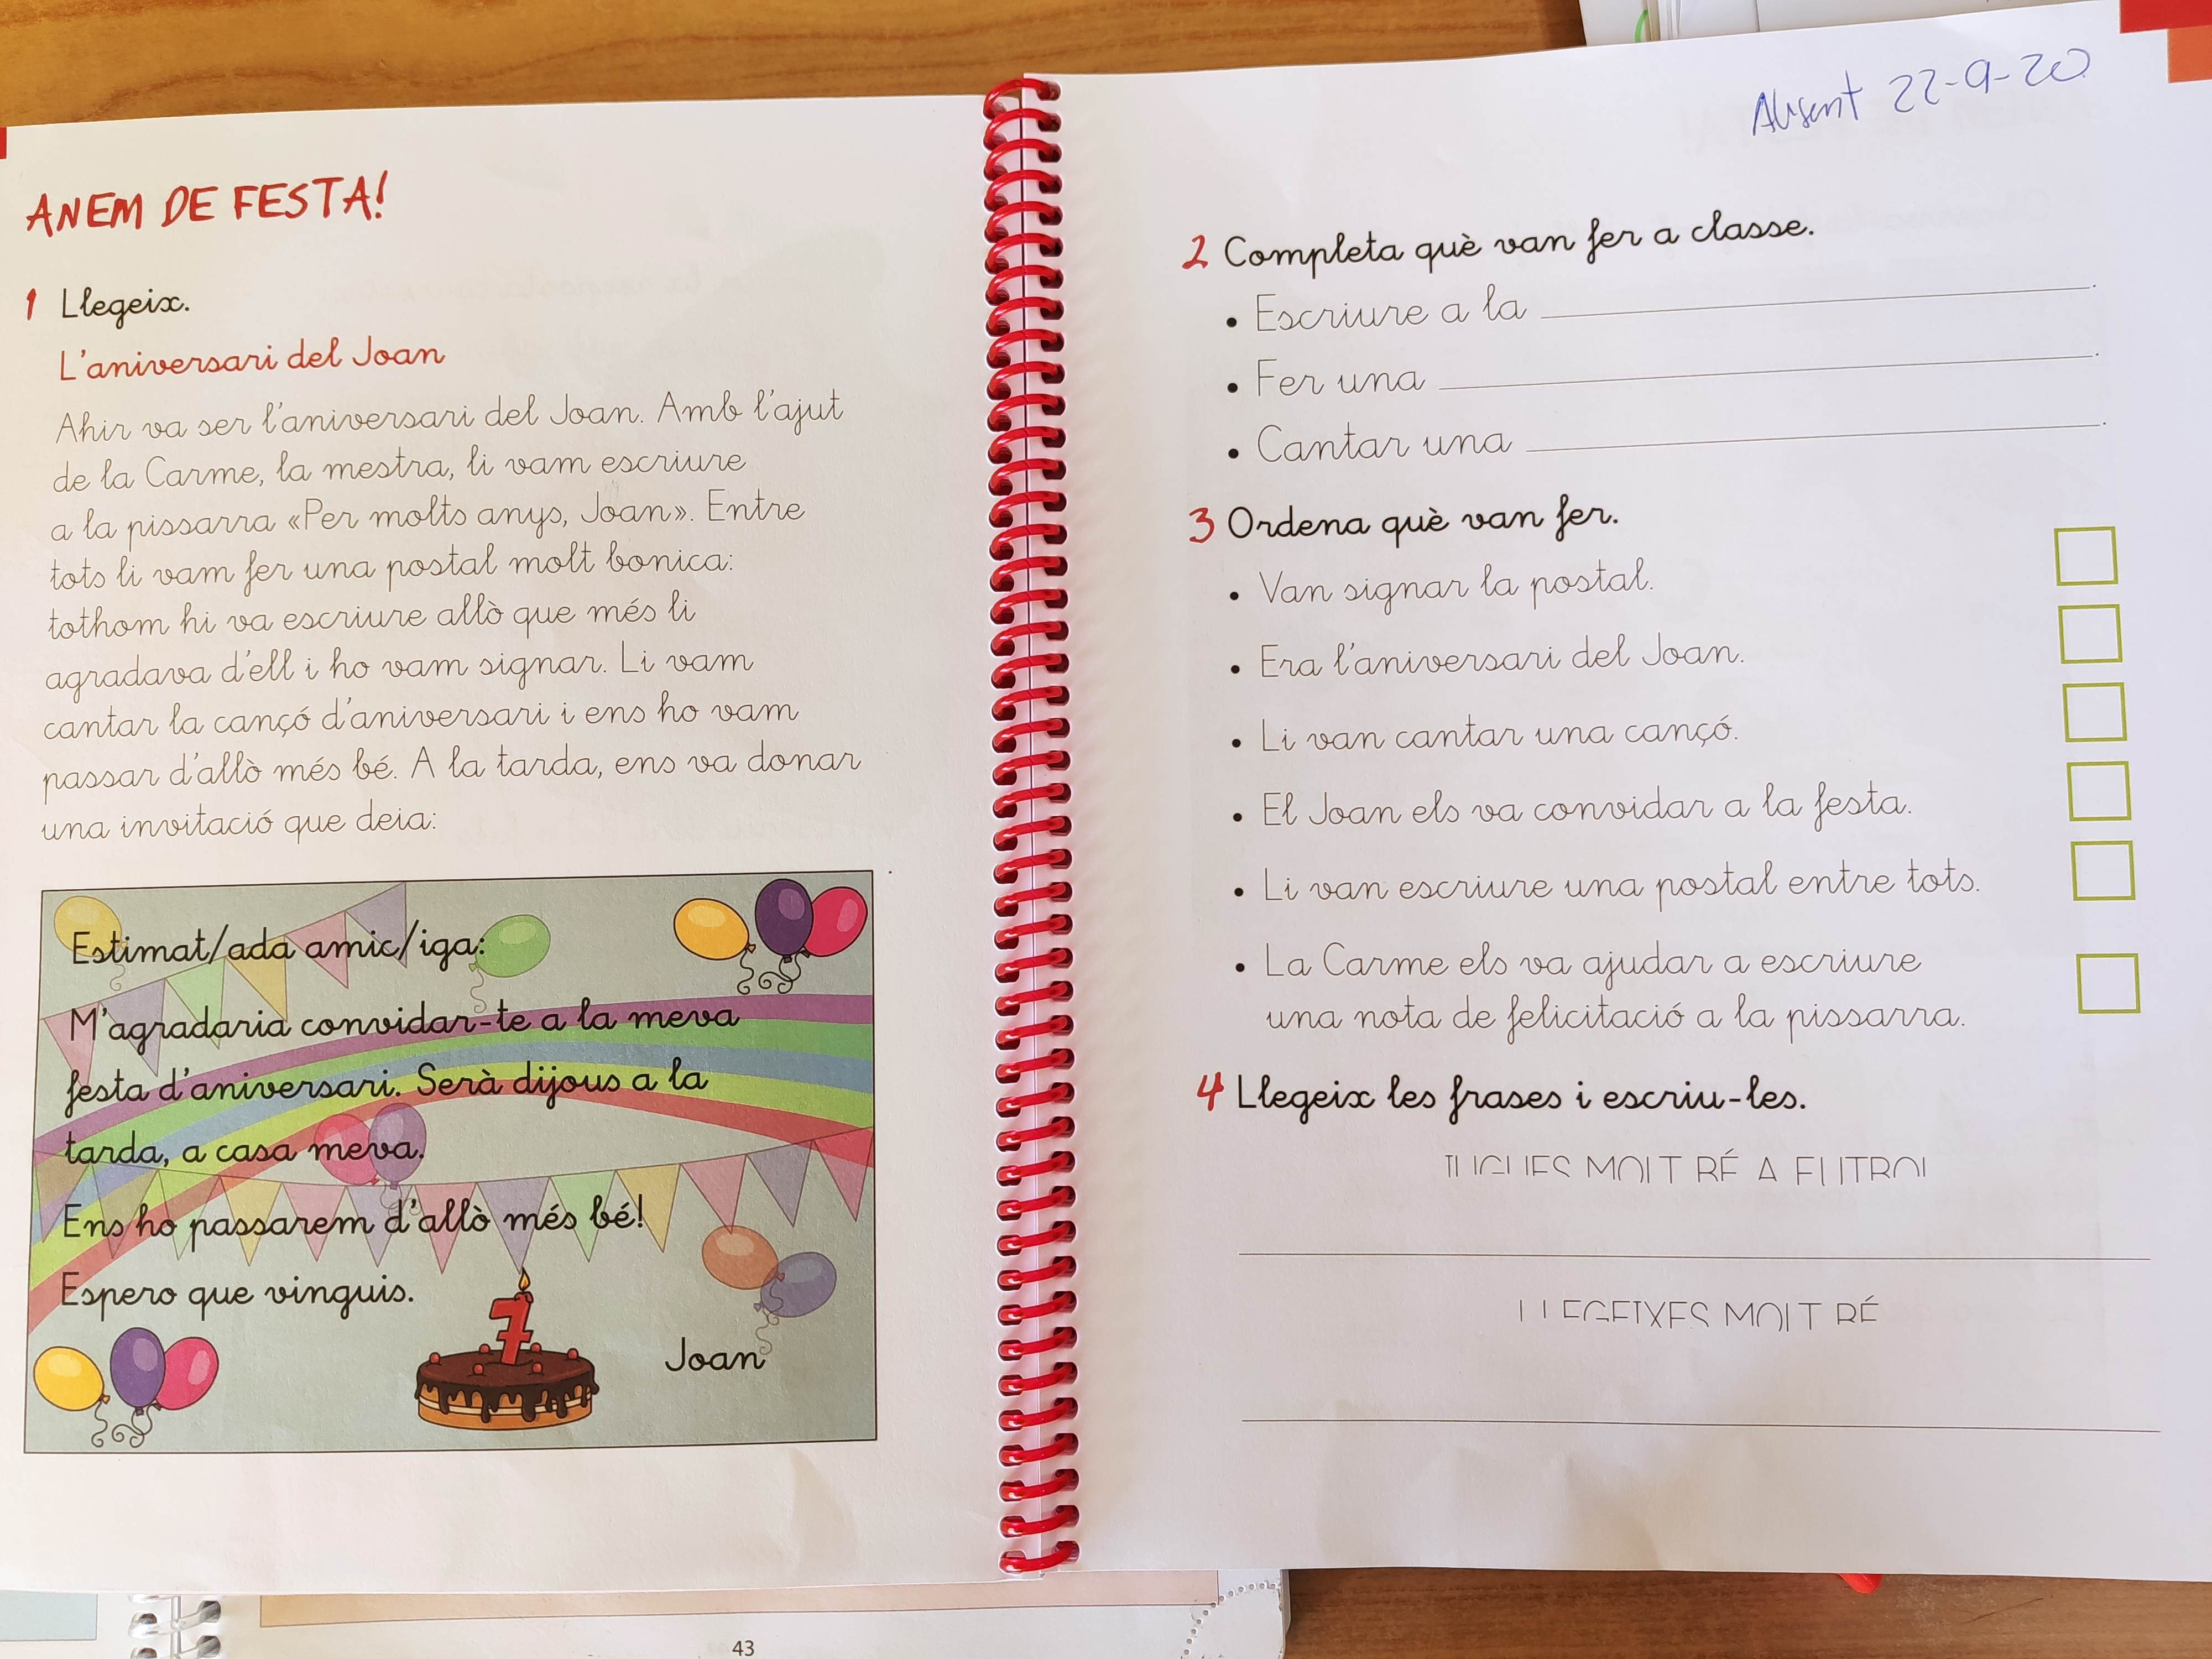 ANEM DE FESTA!
1 Llegeix.
L'aniversari del Joan
Ahir va ser l'aniversari del Joan. Amb l'ajut
de la Carme, la mestra, li vam escriure
a la pissarra «Per molts anys, Joan». Entre
tots li vam fer una postal molt bonica:
tothom hi va escriure allò que més li
agradava d'ell i ho vam signar. Li vam
cantar la cançó d'aniversari i ens ho vam
passar d'allò més bé. A la tarda, ens va donar
una invitació que deia:
Estimat/ada amic/iga:
M'agradaria convidar-te a la meva
festa d'aniversari. Serà dijous a la
tarda, a casa meva.
Ens ho passarem d'allò més bé!
Espero que vinguis.
7
Joan
43
Absent 22-9-20
2 Completa què van fer a classe.
• Escriure a la .
• Fer una .
• Cantar una .
3 Ordena què van fer.
• Van signar la postal.
• Era l'aniversari del Joan.
• Li van cantar una cançó.
• El Joan els va convidar a la festa.
• Li van escriure una postal entre tots.
• La Carme els va ajudar a escriure
una nota de felicitació a la pissarra.
4 Llegeix les frases i escriu-les.
JUGUES MOLT BÉ A FUTBOL
LLEGEIXES MOLT BÉ